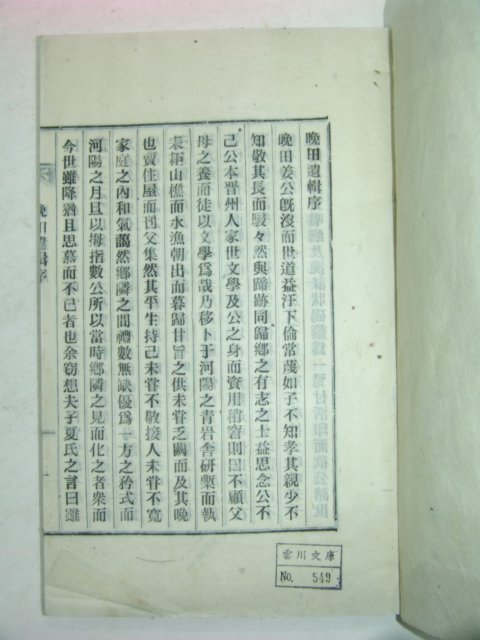 晩田遺輯序
晩田姜公旣沒而世道益汙下倫常蔑如子不知孝其親少不
知敬其長而駸々然與蹄跡同歸鄕之有志之士益思念公不
已公本晋州人家世文學及公之身而資用稍窘則因不顧父
母之養而徒以文學爲哉乃移卜于河陽之青岩舍硏槧而執
耒耜山樵而水漁朝出而暮歸甘旨之供未甞乏闕而及其晚
也賣住屋而刊父集然其平生持己未甞不敬接人未甞不寬
家庭之內和氣藹然鄕隣之間禮數無缺優爲一方之矜式而
河陽之月旦以每指數公所以當時鄕隣之見而化之者衆而
今世雖降猶且思慕而不已者也余窃想夫子夏氏之言曰雖
晩田遺輯序
一
雲川文庫
No. 549